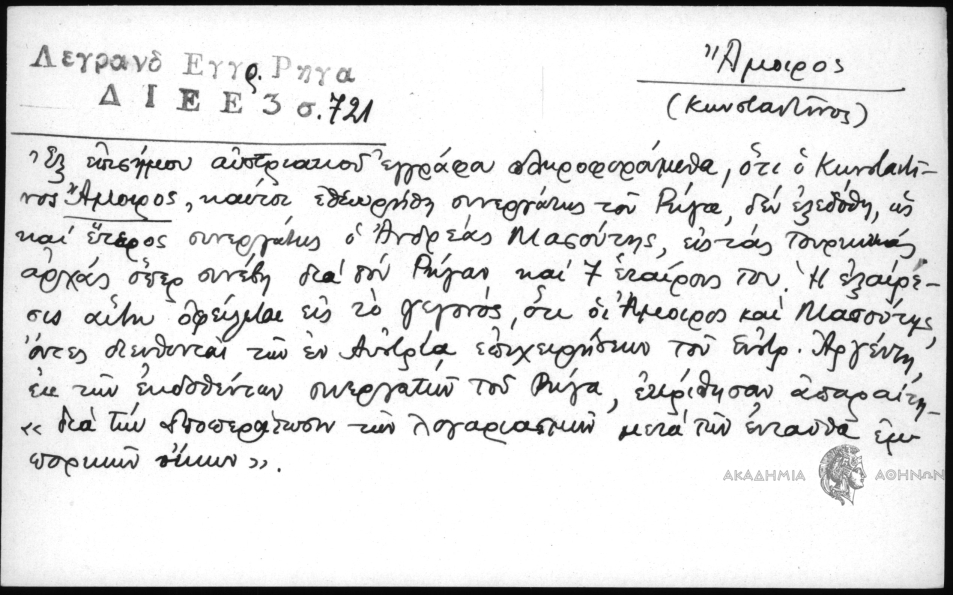 Λεγρανδ Εγγρ. Ρηγα
ΔΙΕΕ 3 σ. 721
Ἄμοιρος
(Κωνσταντῖνος)
Ἐξ ἐπισήμου αὐστριακοῦ ἐγγράφου πληροφορούμεθα, ὅτι ὁ Κωνσταντῖ-
νος Ἄμοιρος, καίτοι ἐθεωρήθη συνεργάτης τοῦ Ρήγα, δέν ἐξεδόθη, ὡς
καί ἕτερος συνεργάτης ὁ Ἀνδρέας Μασούτης, εἰς τάς Τουρκικάς
ἀρχάς ὅπερ συνέβη διά τόν Ρήγαν καί 7 ἑταίρους του. Ἡ ἐξαίρε-
σις αὕτη ὀφείλεται εἰς τό γεγονός, ὅτι οἱ Ἄμοιρος καί Μασούτης,
ὄντες διευθυνταί τῶν ἐν Αὐστρίᾳ ἐπιχειρήσεων τοῦ Εὐστρ. Ἀργέντη,
ἐκ τῶν ἐκδοθέντων συνεργατῶν τοῦ Ρήγα, ἐκρίθησαν ἀπαραίτη-
« διά τήν ἀποπεράτωσιν τῶν λογαριασμῶν μετά τῶν ἐνταῦθα ἐμ-
πορικῶν οἴκων ».
ΑΚΑΔΗΜΙΑ ΑΘΗΝΩΝ